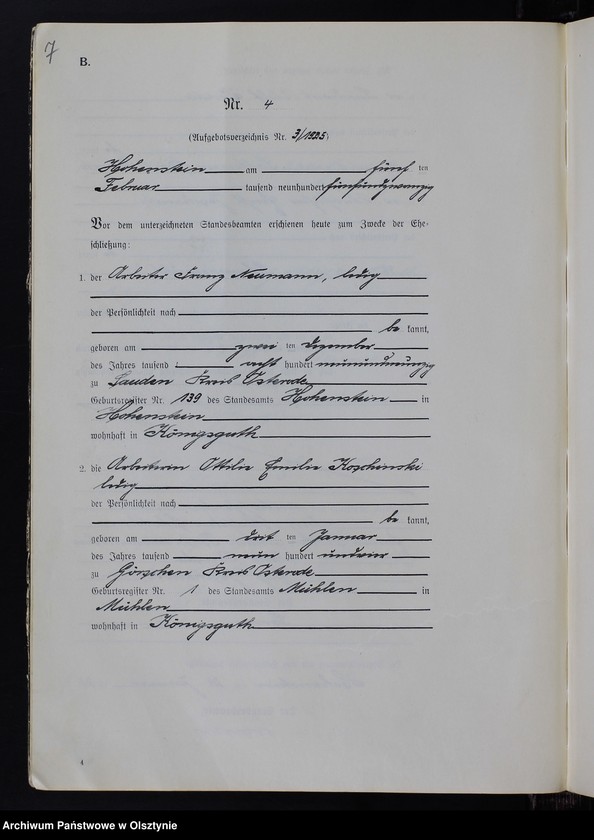 7
B.
Nr. 4
(Aufgebotsverzeichnis Nr. 3/1925)
Hohenstein am fünf ten
Februar tausend neunhundert fünfundzwanzig
Vor dem unterzeichneten Standesbeamten erschienen heute zum Zwecke der Ehe-
schließung:
1. der Arbeiter Franz Neumann, ledig
der Persönlichkeit nach
be kannt,
geboren am zwei ten Dezember
des Jahres tausend acht hundert neunundneunzig
zu Lauden Kreis Osterode
Geburtsregister Nr. 139 des Standesamts Hohenstein in
Hohenstein
wohnhaft in Königsguth
2. die Arbeiterin Ottilie Emilie Koschinski
ledig
der Persönlichkeit nach
be kannt,
geboren am drit ten Januar
des Jahres tausend neun hundert undvier
zu Görschen Kreis Osterode
Geburtsregister Nr. 1 des Standesamts Mühlen in
Mühlen
wohnhaft in Königsguth
4
Archiwum Państwowe w Olsztynie